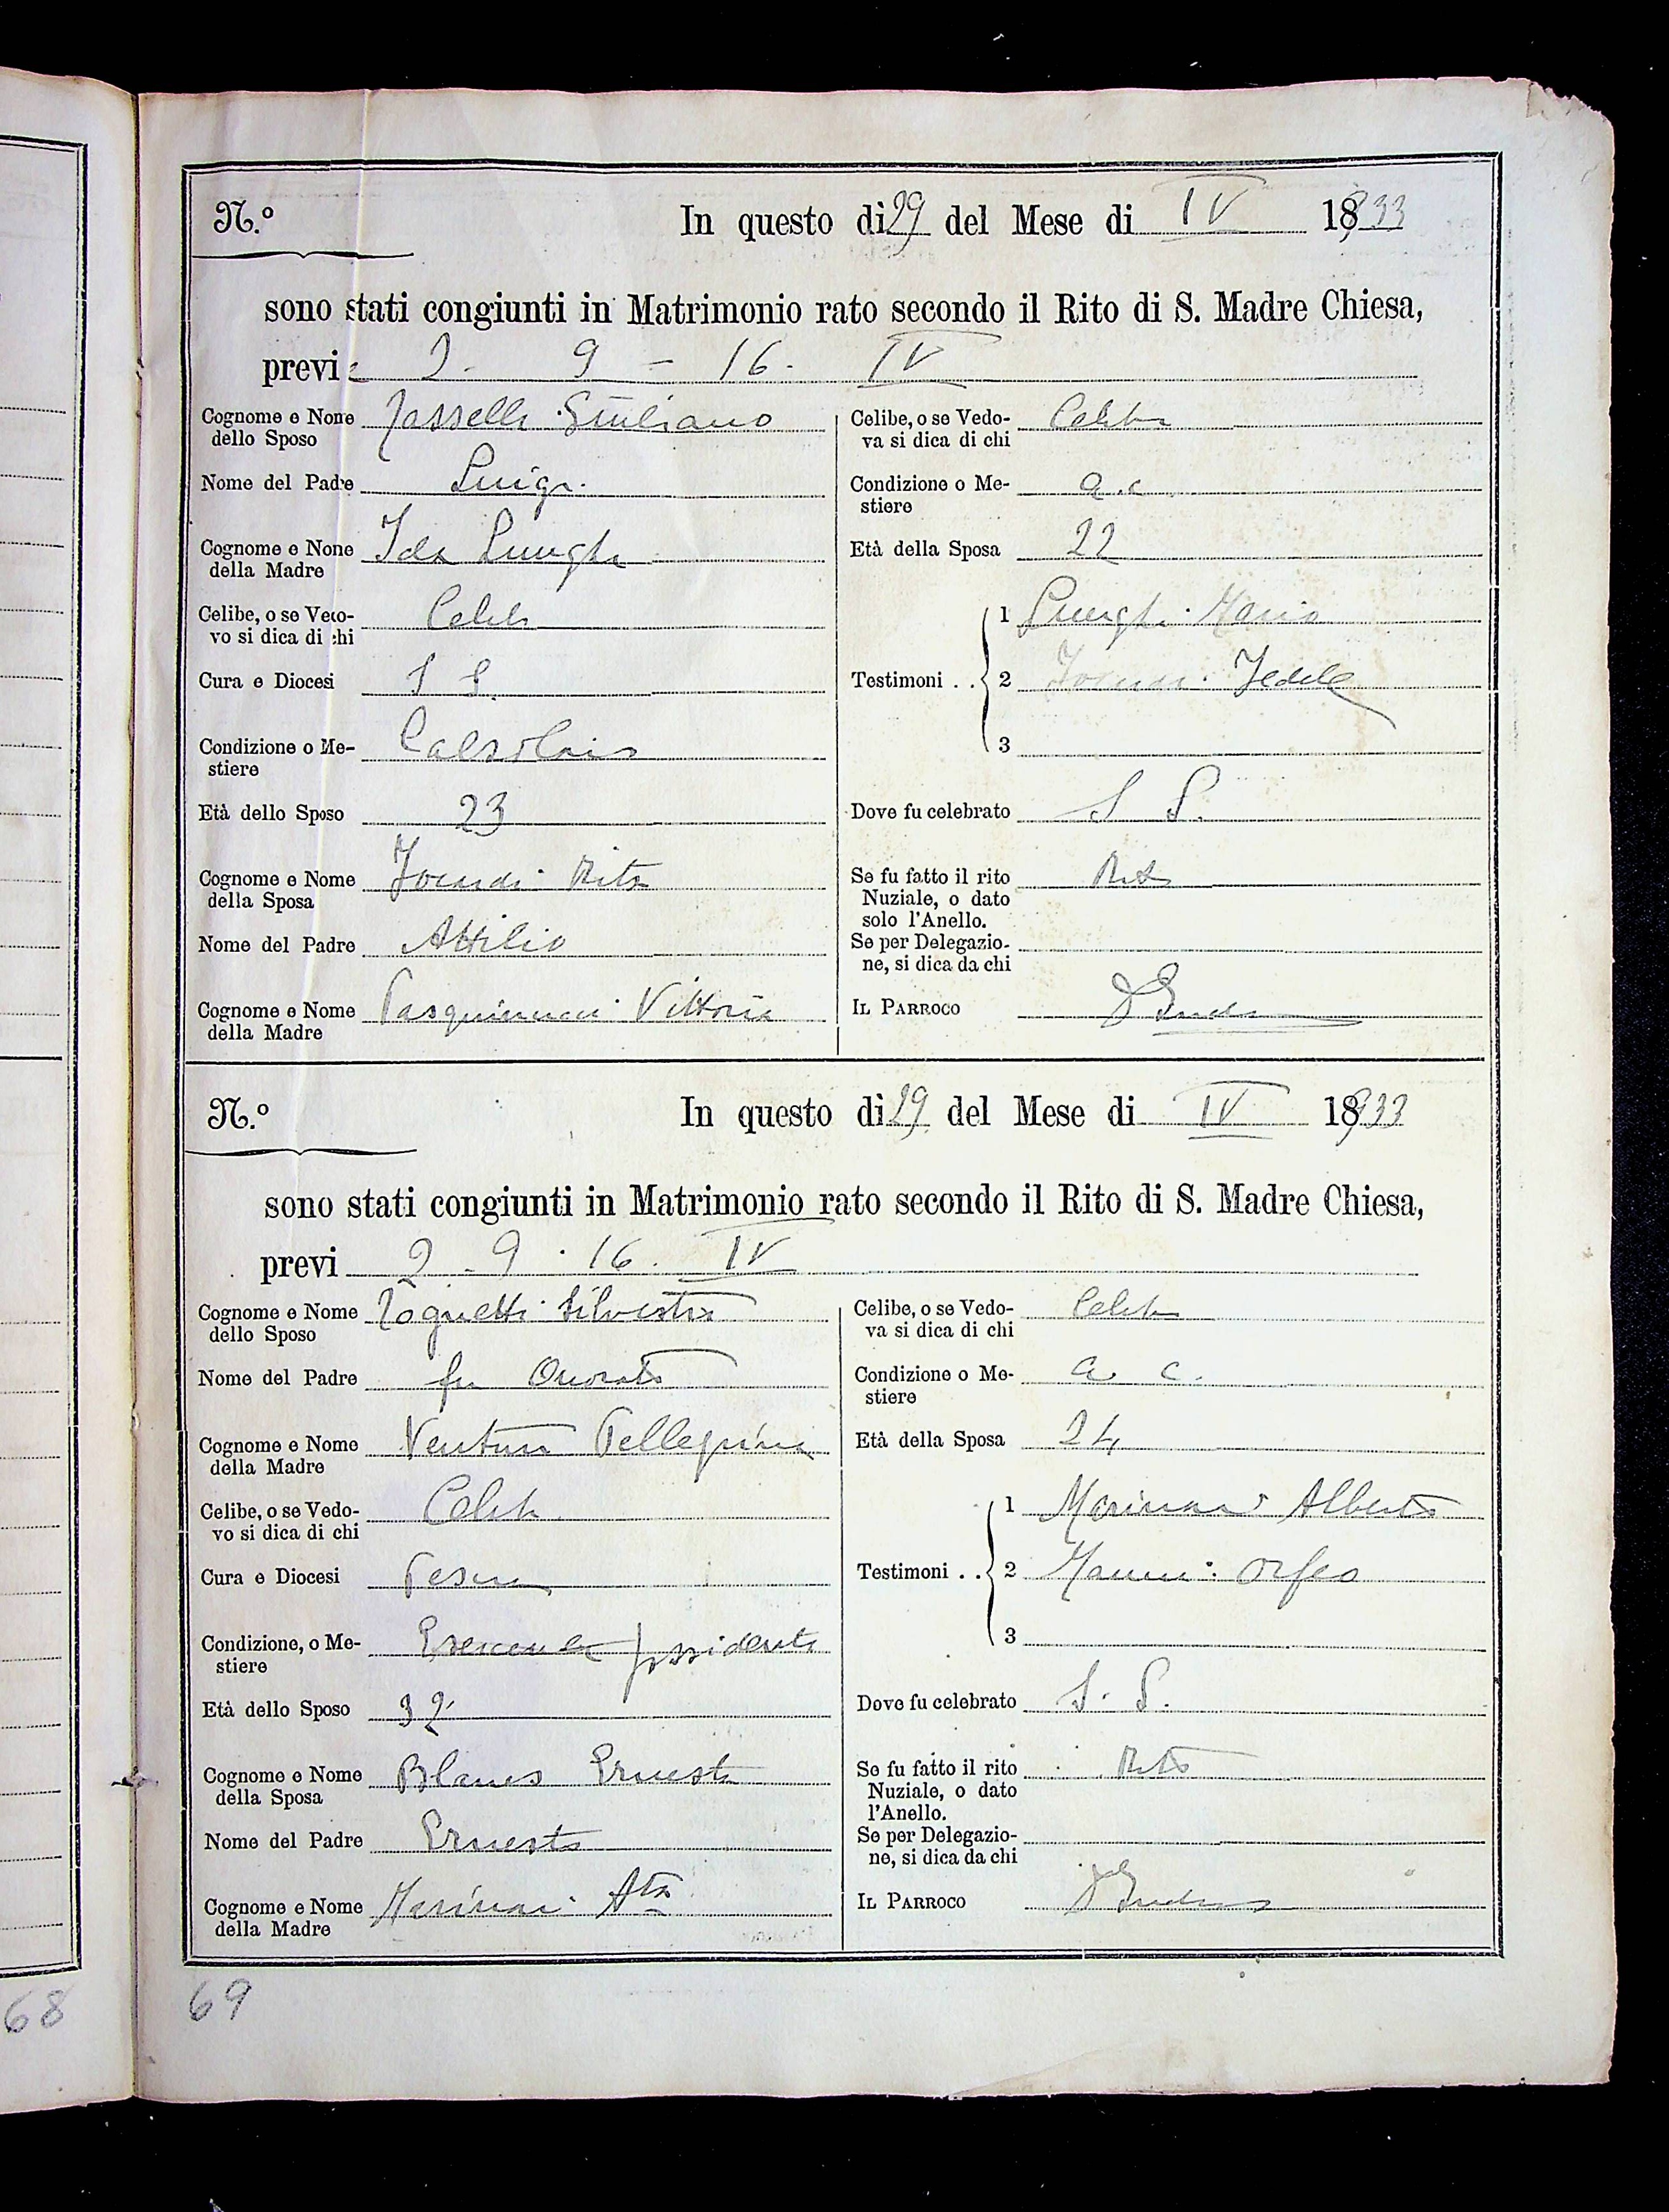 N.º
In questo dì 29 del Mese di IV 1933
sono stati congiunti in Matrimonio rato secondo il Rito di S. Madre Chiesa,
previ 2 - 9 - 16 - IV
Cognome e Nome dello Sposo Giuliano
Nome del Padre Luigi
Cognome e Nome della Madre Ida Lunghi
Celibe, o se Vedo-
vo si dica di chi Celibe
Cura e Diocesi S S.
Condizione o Me-
stiere Calzolaio
Età dello Sposo 23
Cognome e Nome della Sposa Rita
Nome del Padre Attilio
Cognome e Nome della Madre Pasquinucci Vittoria
Celibe, o se Vedo-
va si dica di chi Celibe
Condizione o Me-
stiere a. c.
Età della Sposa 22
Testimoni . .
1 Lunghi Mario
2 Fedele
3
Dove fu celebrato S S.
Se fu fatto il rito
Nuziale, o dato
solo l'Anello. Rito
Se per Delegazio-
ne, si dica da chi
IL PARROCO
N.º
In questo dì 29 del Mese di IV 1933
sono stati congiunti in Matrimonio rato secondo il Rito di S. Madre Chiesa,
previ 2 - 9 - 16 - IV
Cognome e Nome dello Sposo Tognetti Silvestro
Nome del Padre fu Onorato
Cognome e Nome della Madre Venturi Pellegrina
Celibe, o se Vedo-
vo si dica di chi Celibe
Cura e Diocesi Pescia
Condizione, o Me-
stiere possidente
Età dello Sposo 32
Cognome e Nome della Sposa Ernesta
Nome del Padre Ernesto
Cognome e Nome della Madre Marinari
Celibe, o se Vedo-
va si dica di chi Celibe
Condizione o Me-
stiere a. c.
Età della Sposa 24
Testimoni . .
1 Marinari Alberto
2 Orfeo
3
Dove fu celebrato S. S.
Se fu fatto il rito
Nuziale, o dato
l'Anello. Rito
Se per Delegazio-
ne, si dica da chi
IL PARROCO
68
69